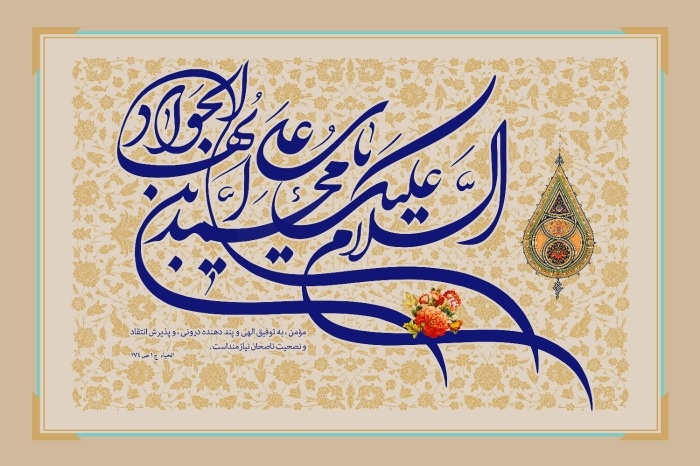 السلام علیک یا محمد بن علی ایها الجواد
مؤمن ، به توفیق الهی و پند دهنده درونی ، و پذیرش انتقاد
و نصحیت ناصحان نیازمند است.
الحیاه ج ۱ ص ۱۷٤